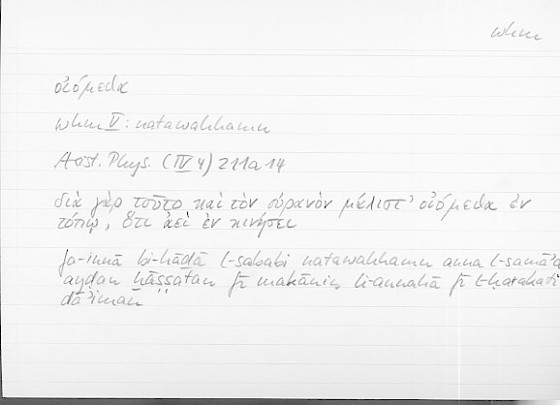 whm
οἰόμεθα
whm V: natawahhamu
Arist. Phys. (IV 4) 211a14
διὰ γὰρ τοῦτο καὶ τὸν οὐρανὸν μάλιστ' οἰόμεθα ἐν
τόπῳ, ὅτι ἀεὶ ἐν κινήσει
fa-innā bi-hāḏā l-sababi natawahhamu anna l-samāʾa
ayḍan ḫāṣṣatan fī makānin li-annahā fī l-ḥarakati
dāʾiman